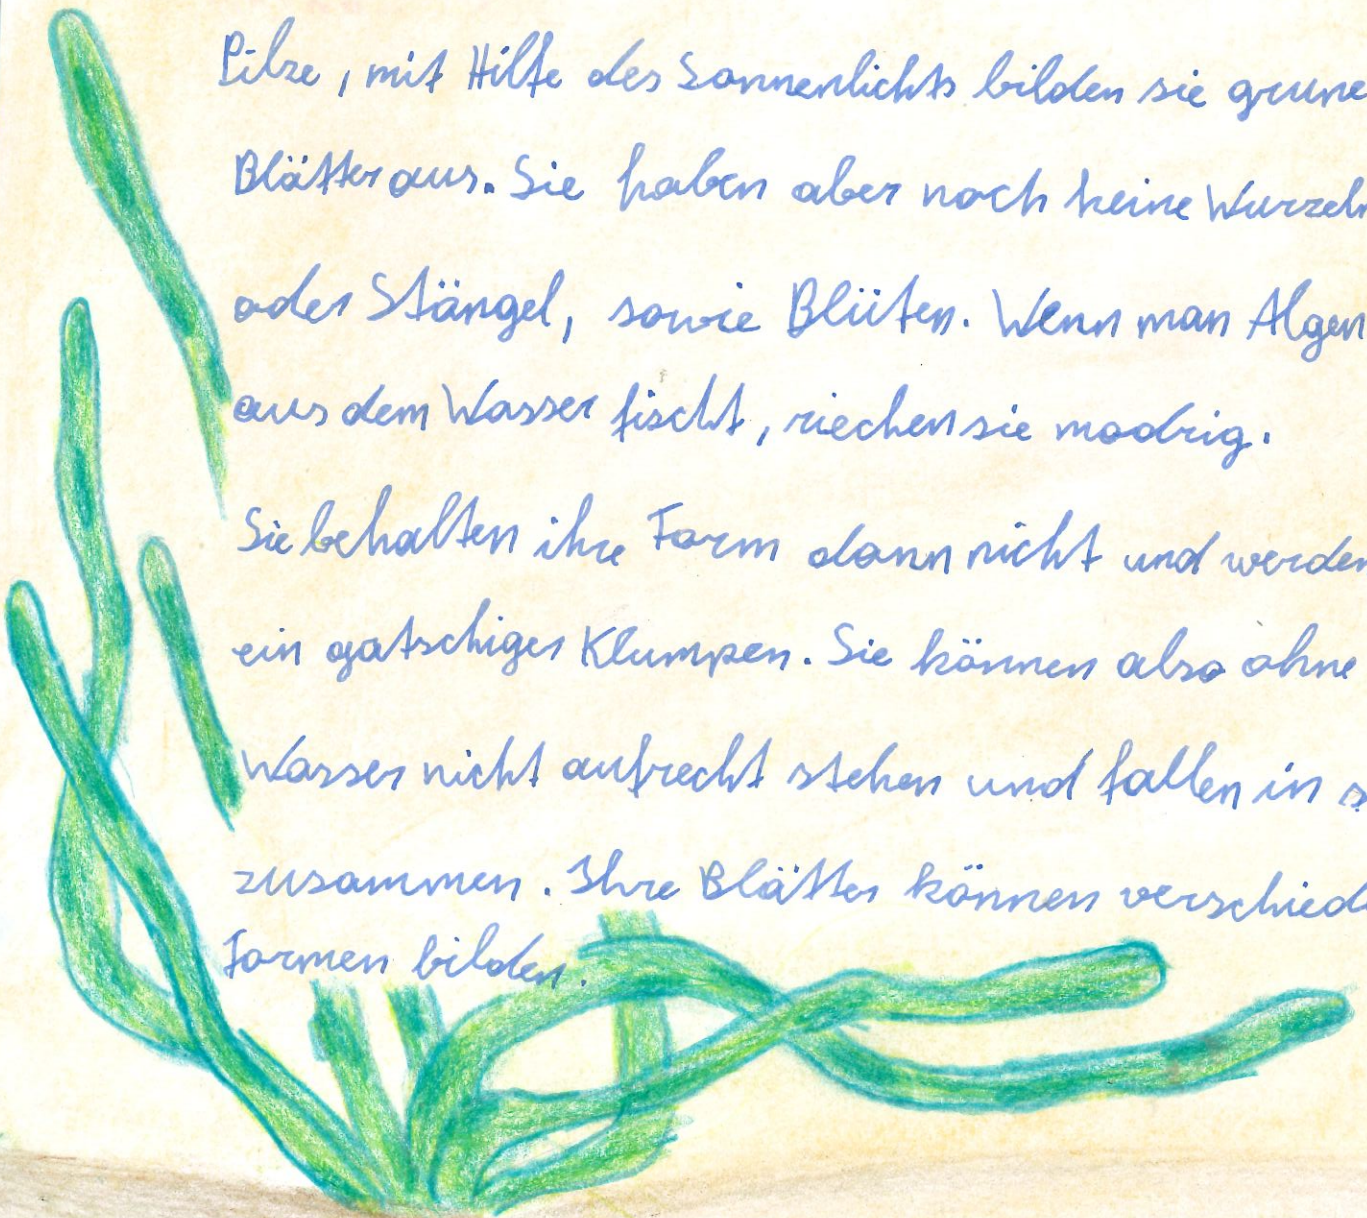 Pilze, mit Hilfe des Sonnenlichts bilden sie grune
Blätter aus. Sie haben aber noch keine Wurzeln
oder Stängel, sowie Blüten. Wenn man Algen
aus dem Wasser fischt, riechen sie modrig.
Sie behalten ihre Form dann nicht und werden
ein gatschiger Klumpen. Sie können also ohne
Wasser nicht aufrecht stehen und fallen in s
zusammen. Ihre Blätter können verschied
Formen bilden.